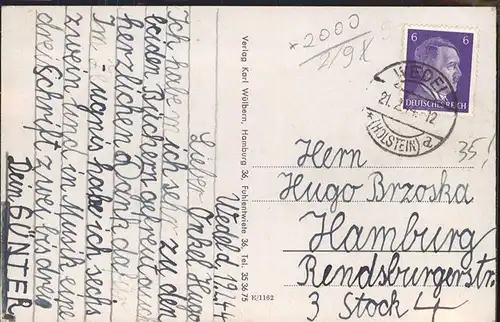 Wedel d. 19.2.44
Lieber Onkel Hugo
Ich habe mich sehr zu den
beiden Büchern gefreut auch
herzliche Dank da
Im habe ich sechs
zweien und in Musik eine
drei Schrift zwei bis drei
Dein GÜNTER
Verlag Karl Wülbern, Hamburg 36, Fuhlentwiete 36, Tel. 35 36 75
E/1162
2000
6 6
DEUTSCHES REICH
WEDEL
21.2.
(HOLSTEIN)
a
35,-
Herrn
Hugo Brzoska
Hamburg
Rendsburgerstr
3 Stock 4